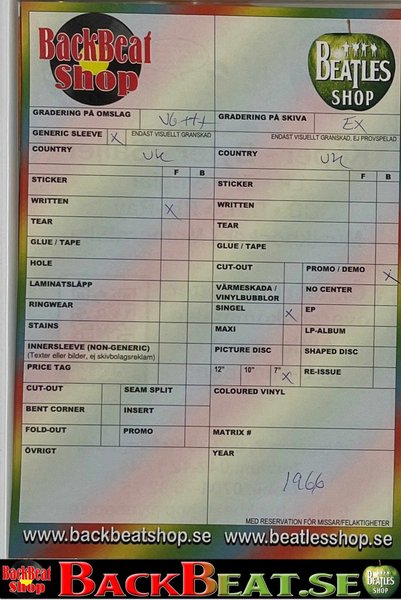 BackBeat
Shop
BEATLES
SHOP
GRADERING PÅ OMSLAG VG++
GRADERING PÅ SKIVA EX
GENERIC SLEEVE X ENDAST VISUELLT GRANSKAD
ENDAST VISUELLT GRANSKAD, EJ PROVSPELAD
COUNTRY UK
COUNTRY UK
F B
STICKER
WRITTEN X
TEAR
GLUE / TAPE
HOLE
LAMINATSLÄPP
RINGWEAR
STAINS
INNERSLEEVE (NON-GENERIC)
(Texter eller bilder, ej skivbolagsreklam)
PRICE TAG
CUT-OUT SEAM SPLIT
BENT CORNER INSERT
FOLD-OUT PROMO
ÖVRIGT
F B
STICKER
WRITTEN
TEAR
GLUE / TAPE
CUT-OUT PROMO / DEMO X
VÄRMESKADA / NO CENTER
VINYLBUBBLOR
SINGEL X EP
MAXI LP-ALBUM
PICTURE DISC SHAPED DISC
12" 10" 7" X RE-ISSUE
COLOURED VINYL
MATRIX #
YEAR
1966
MED RESERVATION FÖR MISSAR/FELAKTIGHETER
www.backbeatshop.se www.beatlesshop.se
BackBeat
Shop
BACKBEAT.SE
BEATLES
SHOP